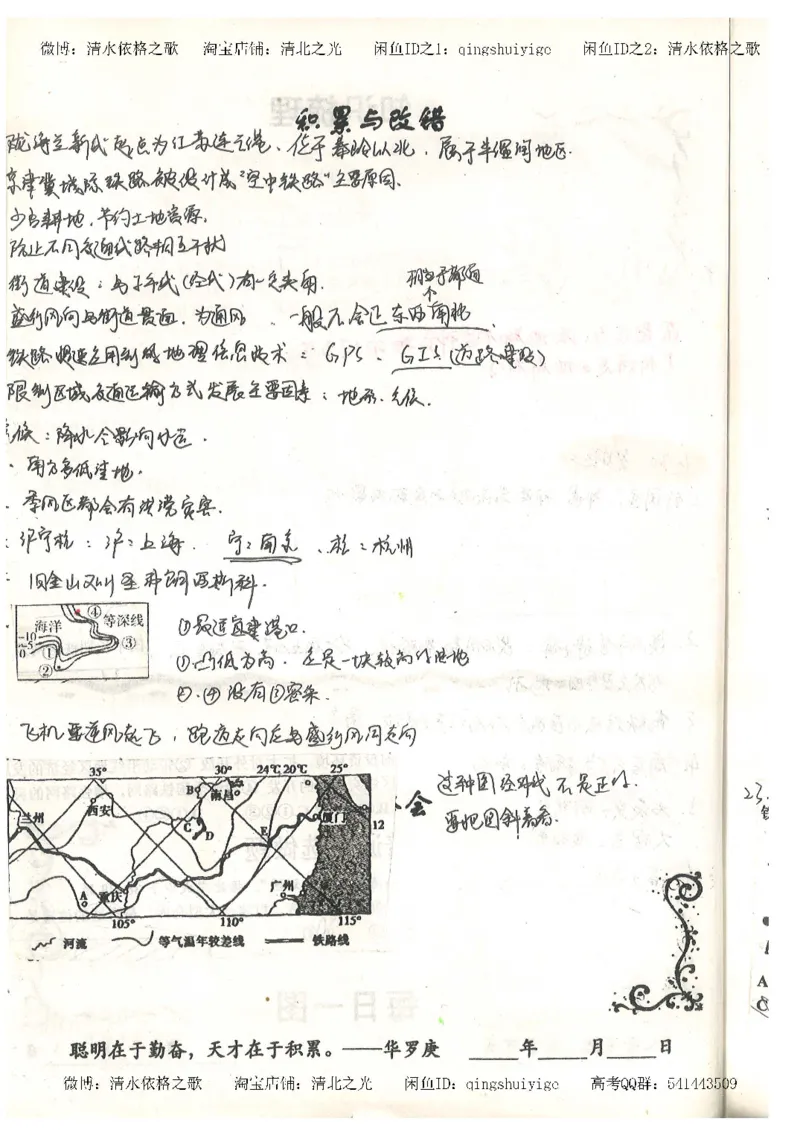 微博：清水依格之歌 淘宝店铺：清北之光 闲鱼ID之1：qingshuiyige 闲鱼ID之2：清水依格之歌
积累与改错
陇海兰新线起点为江苏连云港，位于秦岭以北，属于半湿润地区.
京津冀城际铁路被设计成"空中铁路"主要原因.
少占耕地，节约土地资源，
防止不同交通线路相互干扰
街道建设：与子午线(经线)有一定夹角.
盛行风向与街道 为通风、一般不会正东西南北
铁路 应用到的地理信息技术：GPS、GIS(道路 )
限制区域交通运输方式发展主要因素：地形.气候.
气候：降水会影响
·南方多低洼地.
·季风区都会有洪涝灾害.
沪宁杭：沪：上海. 宁：南京、杭：杭州
旧金山又叫圣弗朗西斯科.
海洋 等深线
-10
-5
0
① ② ③ ④
①最适宜建港口.
①凸低为高. 这是一块较高的陆地
②.④没有①密集.
飞机要逆风起飞，跑道走向应与盛行风同走向
35° 30° 24℃ 20℃ 25°
兰州 西安 B 南昌 厦门 12
C D E
A 重庆 广州
105° 110° 115°
河流 等气温年较差线 铁路线
会
这种图经纬线不是正的.
要把图斜着看.
23.
A
C
聪明在于勤奋，天才在于积累。——华罗庚 ____年____月____日
微博：清水依格之歌 淘宝店铺：清北之光 闲鱼ID：qingshuiyige 高考QQ群：541443509